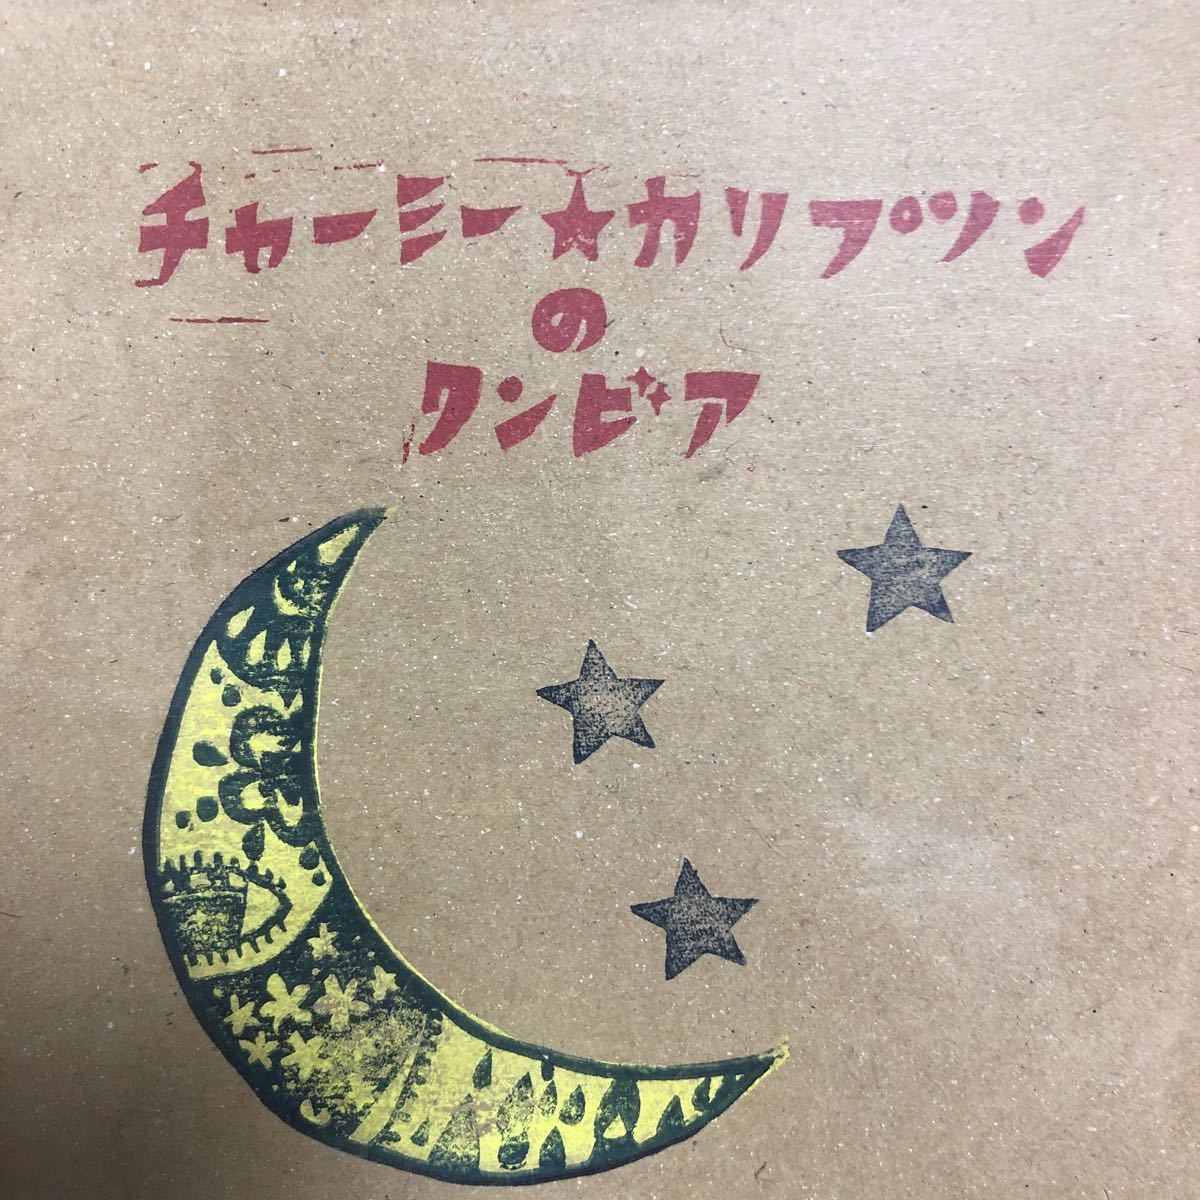 チャーミー★カリプソン
の
クンビア